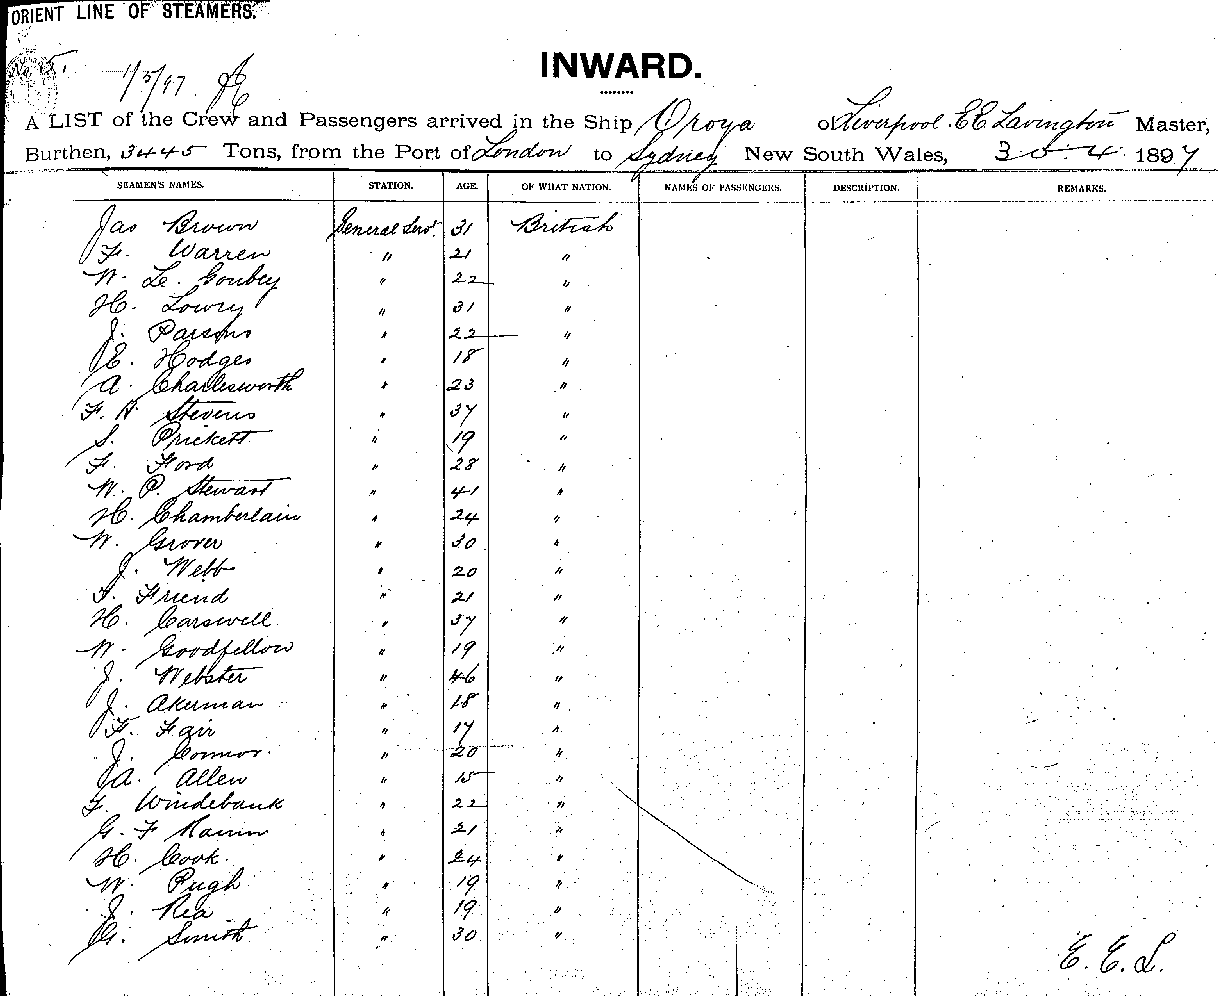 ORIENT LINE OF STEAMERS.
1/5/97
INWARD.
A LIST of the Crew and Passengers arrived in the Ship Oroya of Liverpool. E E Lavington Master,
Burthen, 3445 Tons, from the Port of London to Sydney New South Wales, 30.4. 1897
SEAMEN'S NAMES. STATION. AGE. OF WHAT NATION. NAMES OF PASSENGERS. DESCRIPTION. REMARKS.
Jas Brown General Serv! 31 British
F. Warren " 21 "
W. Le. Goubey " 22 "
H. Lowry " 31 "
J. Parsons " 22 "
E. Hodges " 18 "
A. Charlesworth " 23 "
F. H. Stevens " 37 "
S. Prickett " 19 "
F. Ford " 28 "
W. P. Stewart " 41 "
H. Chamberlain " 24 "
W. Grover " 30 "
J. Webb " 20 "
Friend " 21 "
H. Carswell " 37 "
W. Goodfellow " 19 "
J. Webster " 46 "
J. Akerman " 18 "
F. Fair " 17 "
J. Connor. " 20 "
A. Allen " 15 "
F. Windebank " 22 "
G. F " 21 "
H. Cook. " 24 "
W. Pugh " 19 "
J. Rea " 19 "
G. Smith " 30 "
E. E. L.